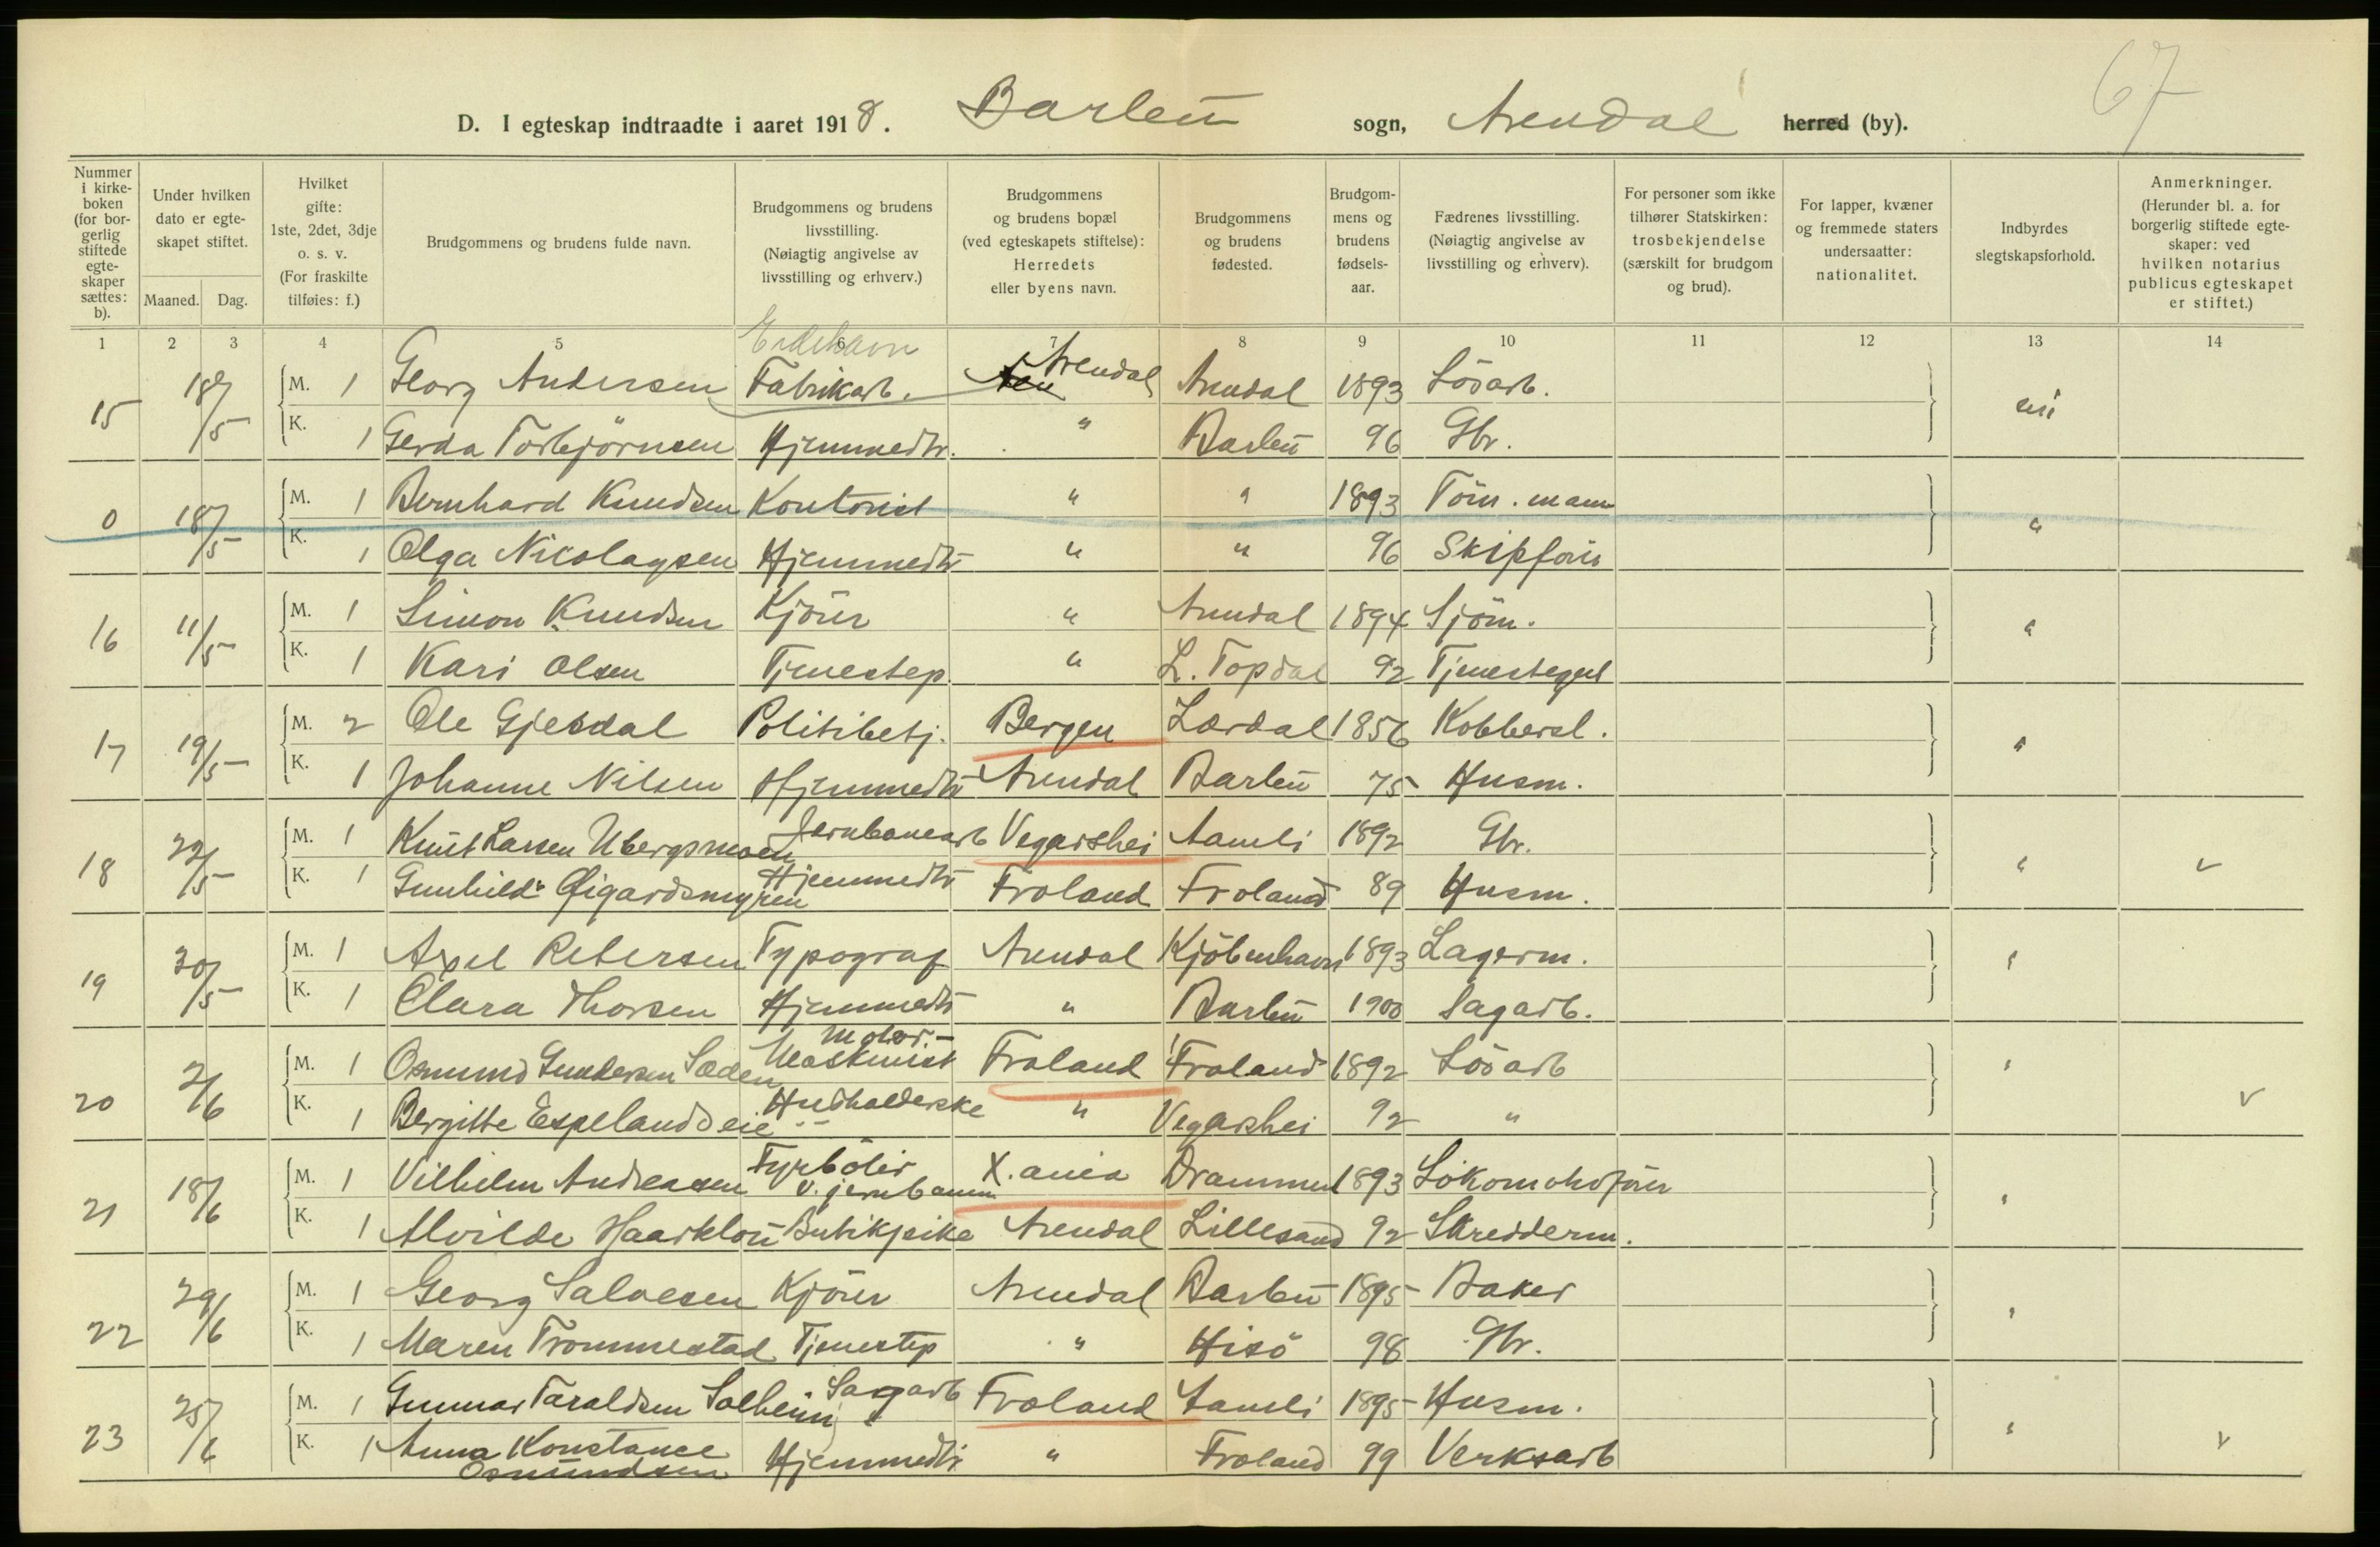 67
D. I egteskap indtraadte i aaret 1918. Barbu sogn, Arendal herred (by).
Nummer i kirkeboken (for borgerlig stiftede egteskaper sættes: b).
Under hvilken dato er egteskapet stiftet.
Maaned. Dag.
Hvilket gifte: 1ste, 2det, 3dje o. s. v. (For fraskilte tilføies: f.)
Brudgommens og brudens fulde navn.
Brudgommens og brudens livsstilling. (Nøiagtig angivelse av livsstilling og erhverv.)
Brudgommens og brudens bopæl (ved egteskapets stiftelse): Herredets eller byens navn.
Brudgommens og brudens fødested.
Brudgommens og brudens fødselsaar.
Fædrenes livsstilling. (Nøiagtig angivelse av livsstilling og erhverv).
For personer som ikke tilhører Statskirken: trosbekjendelse (særskilt for brudgom og brud).
For lapper, kvæner og fremmede staters undersaatter: nationalitet.
Indbyrdes slegtskapsforhold.
Anmerkninger. (Herunder bl. a. for borgerlig stiftede egteskaper: ved hvilken notarius publicus egteskapet er stiftet.)
1 2 3 4 5 6 7 8 9 10 11 12 13 14
Eydehavn
15 18/5 M. 1 Georg Andersen Fabrikarb. Arendal Arendal 1893 Løsarb. ei
K. 1 Gerda Torbjörnsen Hjemmedtr. " Barbu 96 Gbr.
0 18/5 M. 1 Bernhard Knudsen Kontorist " " 1893 Töm.mann "
K. 1 Olga Nicolaysen Hjemmedtr " " 96 Skipsförer
16 11/5 M. 1 Simon Knudsen Kjörer " Arendal 1894 Sjöm. "
K. 1 Kari Olsen Tjenestep. " L. Topdal 92 Tjenestegut
17 19/5 M. 2 Ole Gjesdal Politibetj. Bergen Lærdal 1856 Kobbersl. "
K. 1 Johanne Nilsen Hjemmedtr Arendal Barbu 75 Husm.
18 22/5 M. 1 Knut Larsen Ubergsmoen Jernbanearb Vegarshei Aamli 1892 Gbr. " v
K. 1 Gunhild Øigardsmyren Hjemmedtr Froland Froland 89 Husm.
19 30/5 M. 1 Axel Petersen Typograf Arendal Kjöbenhavn 1893 Lagerm. "
K. 1 Clara Thorsen Hjemmedtr " Barbu 1900 Sagarb.
Motor-
20 2/6 M. 1 Osmund Gundersen Sæden Maskinist Froland Froland 1892 Lösarb " v
K. 1 Bergitte Espelandseie Husholderske " Vegarshei 92 "
21 18/6 M. 1 Vilhelm Andreassen Fyrböter v. jernbanen X.ania Drammen 1893 Lokomotivförer "
K. 1 Alvilde Haarklou Butikpike Arendal Lillesand 92 Skredderm.
22 29/6 M. 1 Georg Salvesen Kjörer Arendal Barbu 1895 Baker "
K. 1 Maren Trommestad Tjenestep " Hisö 98 Gbr.
23 25/6 M. 1 Gunnar Taraldsen Solheim Sagarb Froland Aamli 1895 Husm. " v
K. 1 Anna Konstance Osmundsen Hjemmedtr. " Froland 99 Verksarb